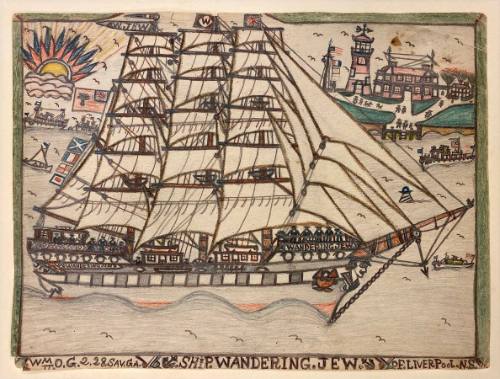 W. JEW
W
WANDERING. JEW
WANDERING. JEW
WM. O. G. 2. 28. SAV. GA. SHIP. WANDERING. JEW. OF. LIVERPOOL. N.S